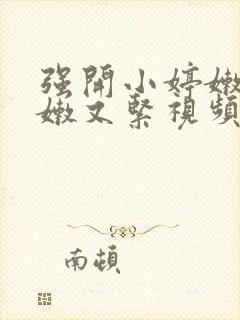 强開小婷嫩
嫩又緊視頻
南頓